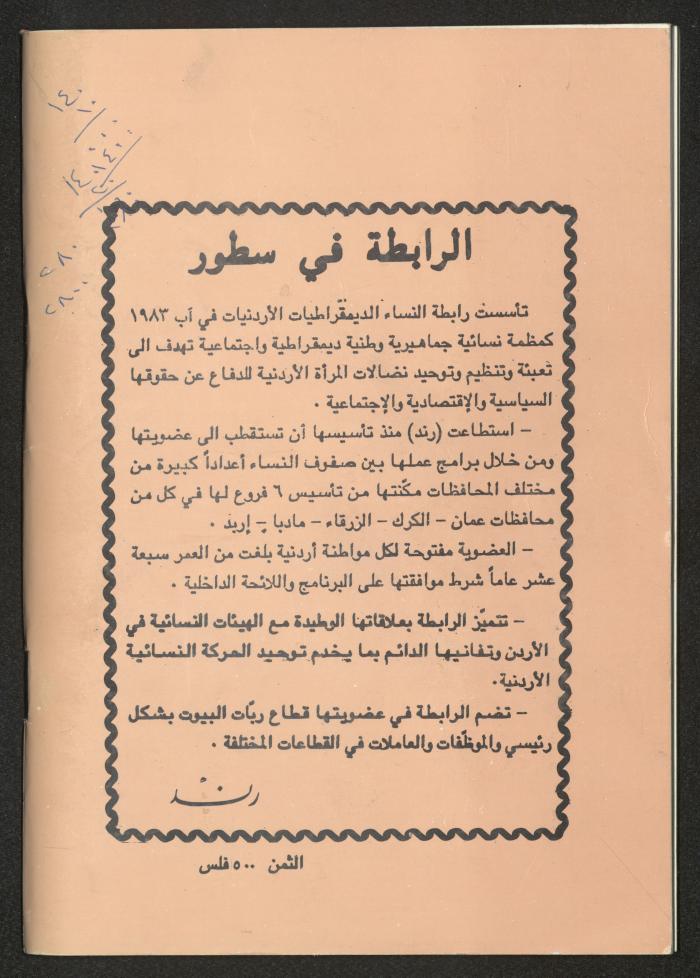 الرابطة في سطور
تأسست رابطة النساء الديمقراطيات الأردنيات في آب ١٩٨٣
كمظمة نسائية جماهيرية وطنية ديمقراطية واجتماعية تهدف الى
تعبئة وتنظيم وتوحيد نضالات المرأة الأردنية للدفاع عن حقوقها
السياسية والإقتصادية والإجتماعية .
– استطاعت (رند) منذ تأسيسها أن تستقطب الى عضويتها
ومن خلال برامج عملها بين صفوف النساء أعداداً كبيرة من
مختلف المحافظات مكّنتها من تأسيس ٦ فروع لها في كل من
محافظات عمان – الكرك – الزرقاء – مادبا – إربد .
– العضوية مفتوحة لكل مواطنة أردنية بلغت من العمر سبعة
عشر عاماً شرط موافقتها على البرنامج واللائحة الداخلية .
– تتميّز الرابطة بعلاقاتها الوطيدة مع الهيئات النسائية في
الأردن وتفانيها الدائم بما يخدم توحيد الحركة النسائية
الأردنية.
– تضم الرابطة في عضويتها قطاع ربّات البيوت بشكل
رئيسي والموظّفات والعاملات في القطاعات المختلفة .
رند
الثمن ٥٠٠ فلس